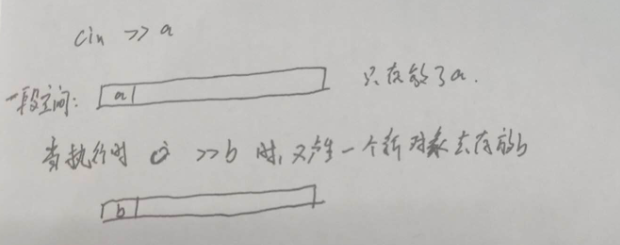 cin >> a
一段空间: a 只存放了a.
当执行时 >> b 时,又产生一个新对象去存放b
b